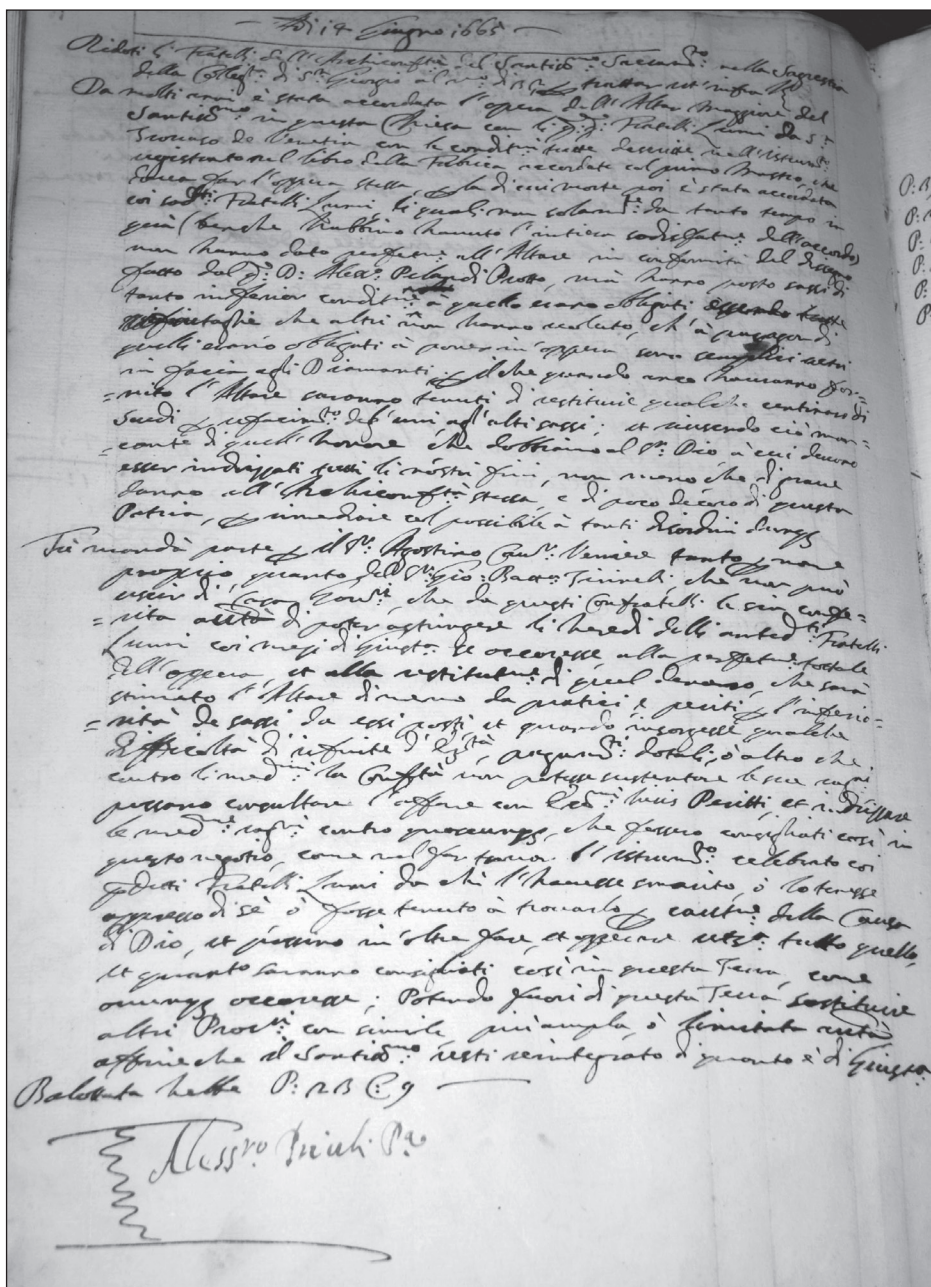 Adi 14 Giugno 1665
Ridoti li Fratelli dell'Archiconfta del Santissmo Sacramto nella Sagrestia
della Collegta di S. Giorgio al no di trattar ut infra
Da molti anni è stata accordata l'opera dell'Altar Maggiore del
Santissmo in questa Chiesa con li q. q. Fratelli Lumi da S.
Trovaso de Venetia con le conditni tutte descritte nell'istrumto
registrato nel libro della Fabrica accordate col primo Mastro, che
dovea far l'oppera stessa, p la di cui morte poi è stata accordata
coi sodti Fratelli Lumi, li quali non solamte da tanto tempo in
quà (benche habbino havuto l'intiera sodisfatne dell'accordo)
non hanno dato perfetne all'Altare in conformità del disegno
fatto dal q. D: Alessо Polandi Protto, mà hanno posto sassi di
tanto inferior conditne à quello erano obligati essendo tutte
che altri non hanno voluto, ch'à paragon di
quelli erano obligati à poner in oppera sono semplici vetri
in facia agli Diamanti. p il che quando anco havranno for-
-nito l'Altare saranno tenuti di restituir qualche centinaro di
Scudi p refacimto del'uni agl'altri sassi; et riuscendo ciò man-
-cante di quell'honore che dobbiamo al Sr. Dio à cui devono
esser indrizzati tutti li nostri fini, non meno che di grave
danno all'Archiconfta stessa, e di poco decoro di questa
Patria, p rimediare col possibile à tanti disordini
Fù mandà parte p il Sr. Agostino Veniere tanto p nome
proprio, quanto del Sr. Gio: Batta che non può
uscir di Casa Govre, che da questi Confratelli le sia confe-
-rita auttà di poter astringere li heredi delli antedti Fratelli
Lumi coi mezi di Giusta se occoresse alla perfetne totale
dell'oppera, et alla restitutne di quel denaro, che sarà
stimato l'Altare di meno da pratici e periti p l'inferio-
-rità de sassi da essi posti et quando insorgesse qualche
difficoltà di refiute d'eredtà, asegnamti dotali, ò altro che
contro li medmi la Confta non potesse sustentare le sue ragni
possano consultare l'affare con Iuris Peritti, et indrizzare
le medme ragni contro che fossero consigliati così in
questo negotio, come nel far trovar l'istrumto celebrato coi
pdetti Fratelli Lumi da chi l'havesse smarito, ò lo tenesse
appresso di sè ò fosse tenuto à trovarlo p cautne della Causa
di Dio, et possino in oltre fare, et operare tutto quello,
et quanto saranno consigliati così in questa Terra, come
occoresse; Potendo fuori di questa Terra sostituire
altri Procri con simile più ampla, ò limitata auttà
affine che il Santissmo resti reintegrato di quanto è di Giusta
Balottata hebbe P: 12 B C: 9
Alessro